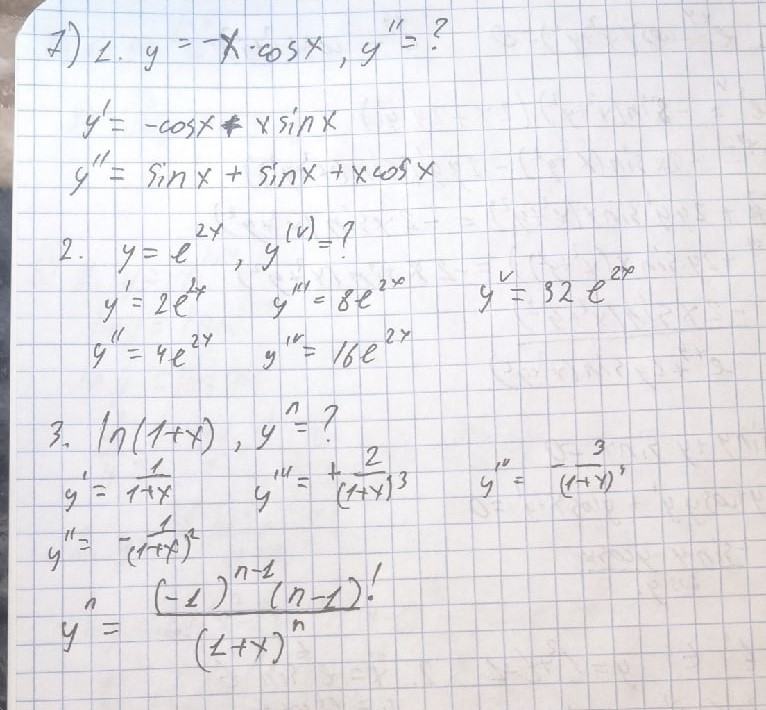 7) 1. y = -x·cosx, y'' = ?
y' = -cosx + xsinx
y'' = sinx + sinx + xcosx
2. y = e^{2x}, y^{(V)} = ?
y' = 2e^{2x} y''' = 8e^{2x} y^{V} = 32 e^{2x}
y'' = 4e^{2x} y^{IV} = 16e^{2x}
3. ln(1+x), y^{n} = ?
y' = \frac{1}{1+x} y''' = +\frac{2}{(1+x)^3} y^{IV} = -\frac{3}{(1+x)^4}
y'' = -\frac{1}{(1+x)^2}
y^{n} = \frac{(-1)^{n-1}(n-1)!}{(1+x)^n}